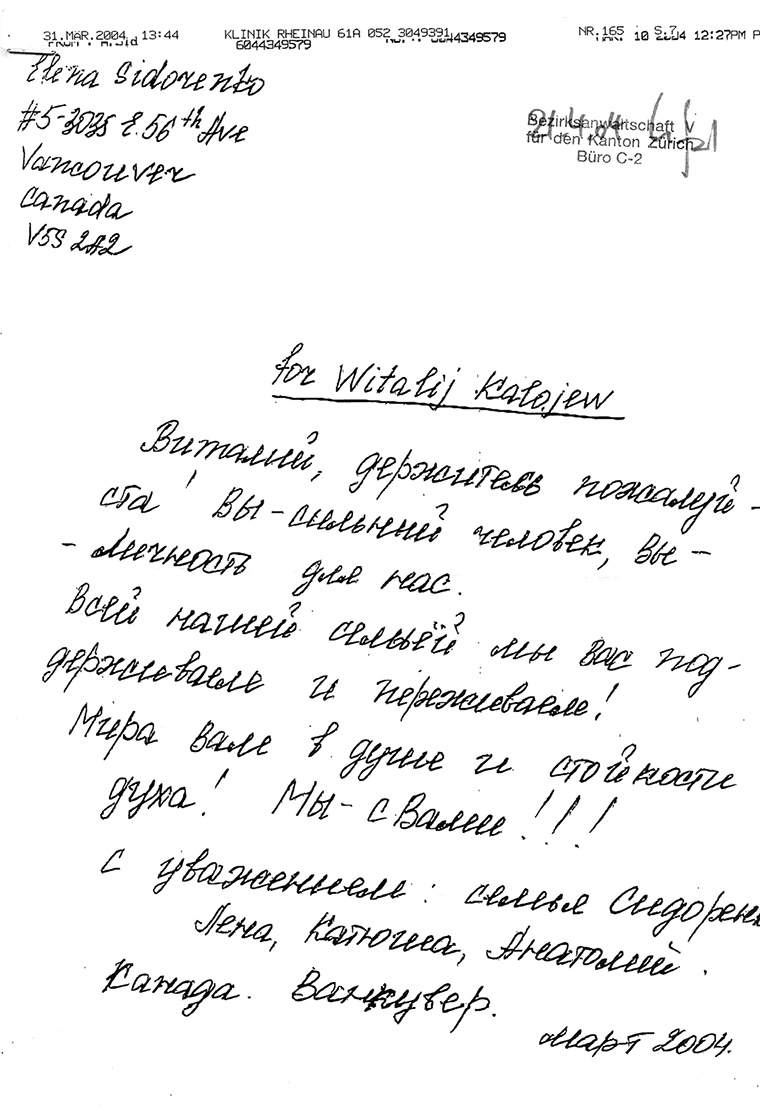 31.MAR.2004 13:44 KLINIK RHEINAU 61A 052 3049391 NR.165 S.7
6044349579 6044349579 10 2004 12:27PM P
Elena Sidorenko
#5-3035 E.56th Ave
Vancouver
Canada
V5S 2A2
21.4.04
Bezirksanwaltschaft V
für den Kanton Zürich
Büro C-2
for Witalij Kalojew
Виталий, держитесь пожалуй-
ста! Вы-сильный человек, вы-
-личность для нас.
Всей нашей семьёй мы вас под-
держиваем и переживаем!
Мира вам в душе и стойкости
духа! Мы-с Вами!!!
С уважением: семья Сидорен
Лена, Катюша, Анатолий.
Канада. Ванкувер.
март 2004.